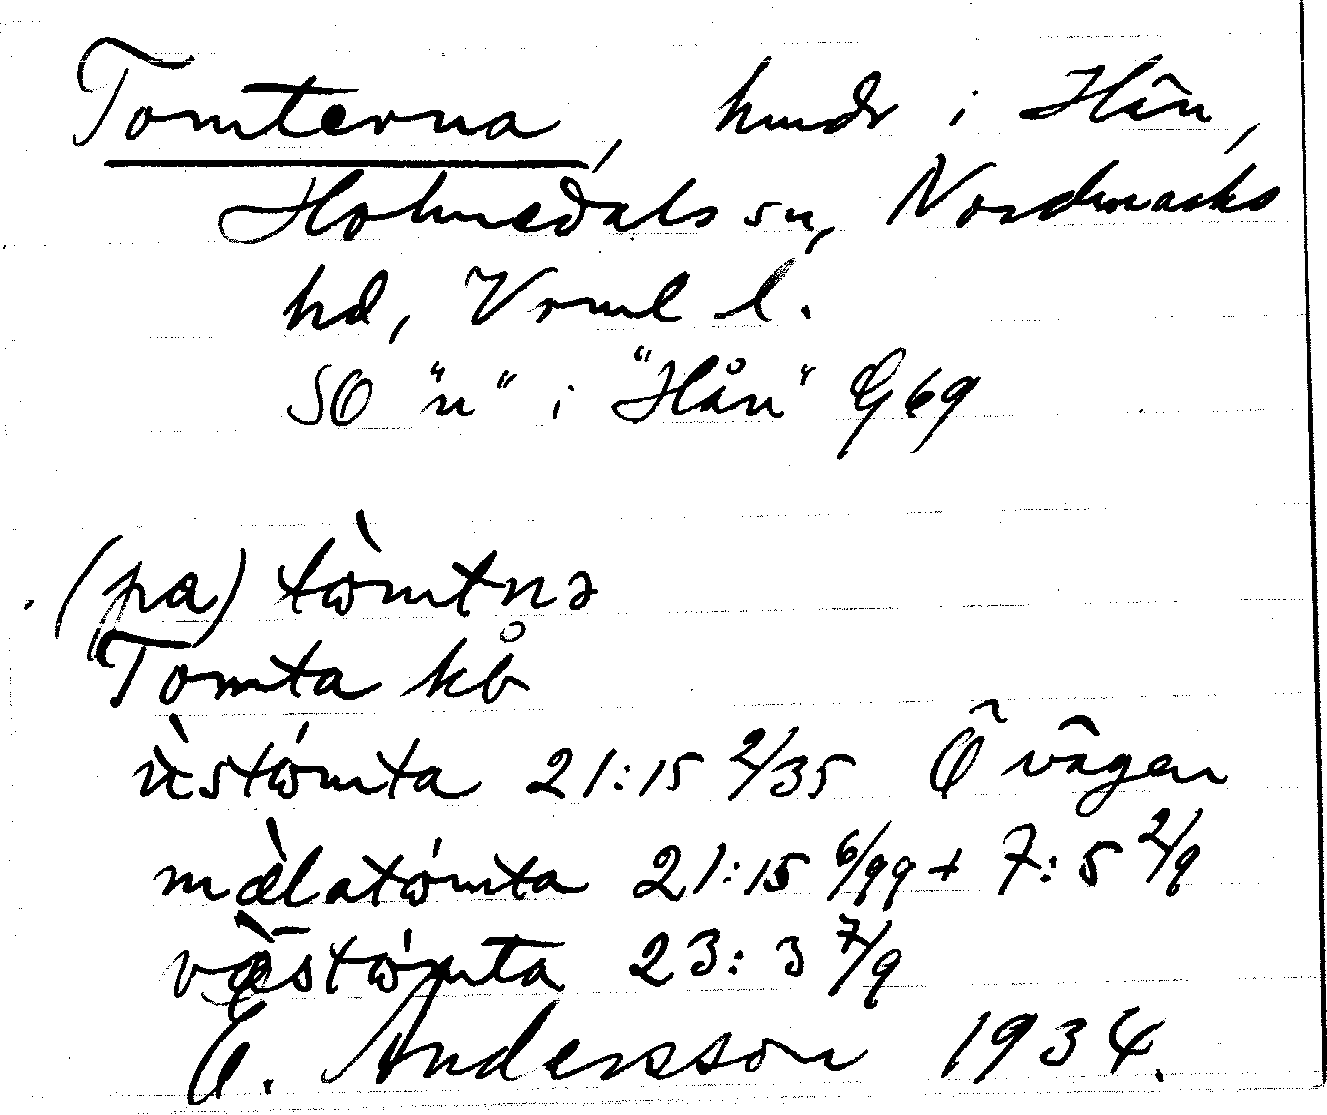 Tomterna, hmdr i Hån,
Holmedals sn, Nordmarks
hd, Vrml l.
SO "n" i "Hån" G69
(pa) tòmtnə
Tomta kb
ùstómta 21:15 2/35 Ö vägen
mælatómta 21:15 6/99 + 7:5 2/9
væstómta 23:3 7/9
E. Andersson 1934.